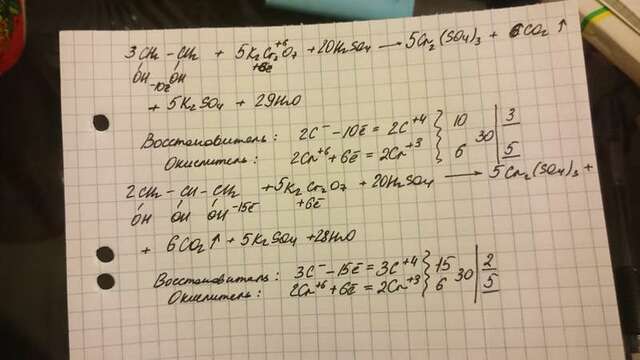 3CH₂ – CH₂ + 5K₂Cr₂⁺⁶O₇ + 20H₂SO₄ → 5Cr₂(SO₄)₃ + 6CO₂ ↑
OH OH -10ē +6ē
+ 5K₂SO₄ + 29H₂O
Восстановитель: 2C⁻ -10ē = 2C⁺⁴ } 10 | 3
Окислитель: 2Cr⁺⁶ + 6ē = 2Cr⁺³ } 6 30 | 5
2CH₂ – CH – CH₂ + 5K₂Cr₂O₇ + 20H₂SO₄ → 5Cr₂(SO₄)₃ +
OH OH OH -15ē +6ē
+ 6CO₂↑ + 5K₂SO₄ + 28H₂O
Восстановитель: 3C⁻ -15ē = 3C⁺⁴ } 15 | 2
Окислитель: 2Cr⁺⁶ + 6ē = 2Cr⁺³ } 6 30 | 5